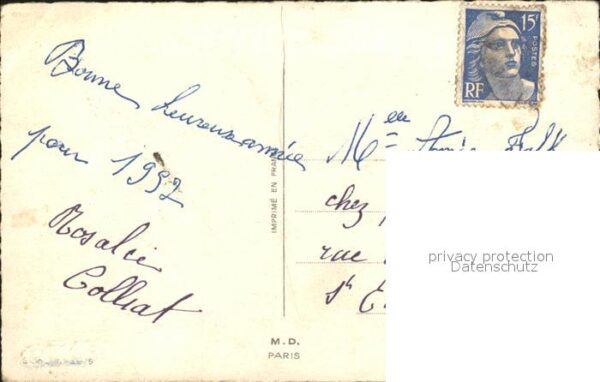 Bonne
heureuse année
pour 1952
Rosalie
Colliat
15F
POSTES
RF
Melle
chez
rue
St E
IMPRIMÉ EN FRAN
M.D.
PARIS
privacy protection
Datenschutz